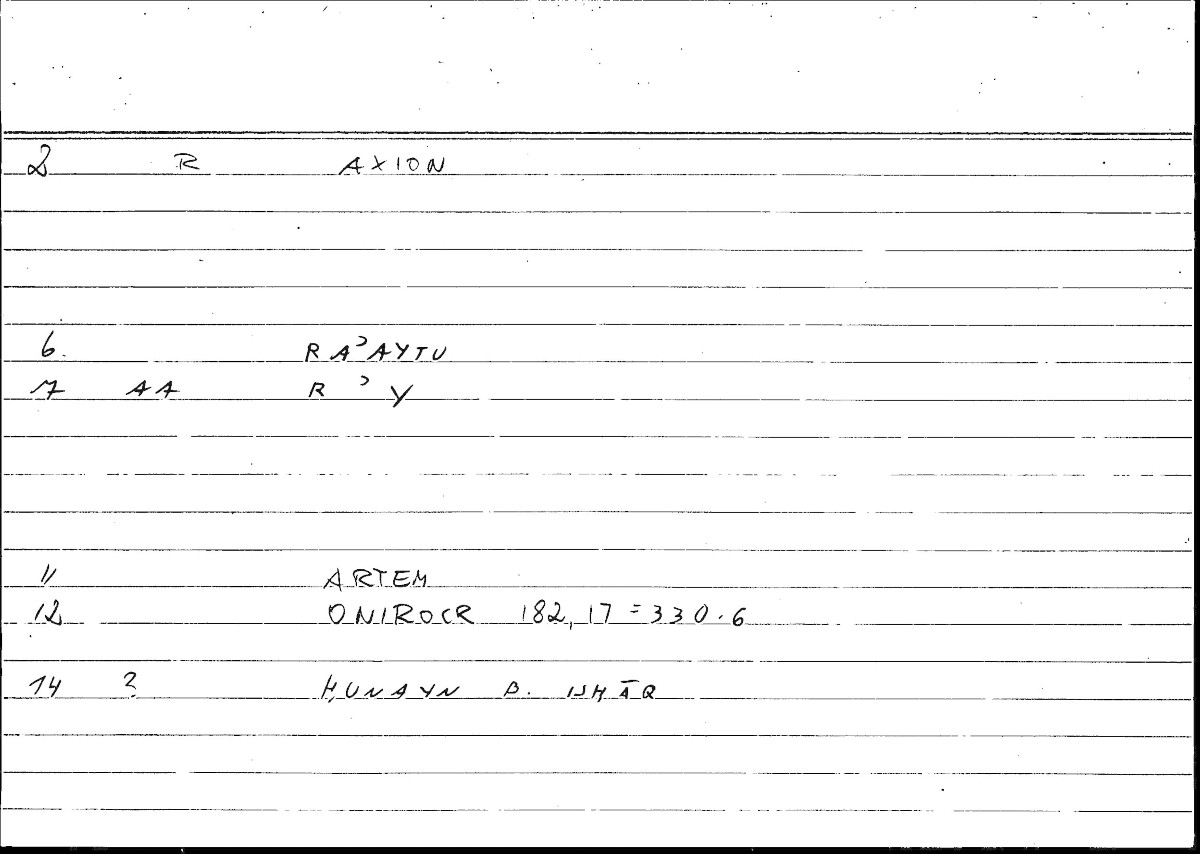 2 R AXION
6 RAʾAYTU
7 AA R ʾ Y
11 ARTEM
12 ONIROCR 182,17 = 330.6
14 ? ḤUNAYN B. ISḤĀQ